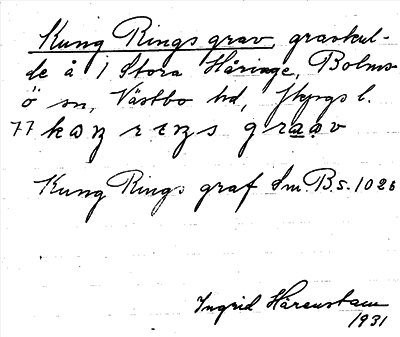 Kung Rings grav, gravkul-
de å 1 Stora Håringe, Bolms
ö sn, Västbo hd, Jkpgs l.
77 kɷŋ rɩŋs graav
Kung Rings graf Sm. B. s. 102
Ingrid Härenstam
1931